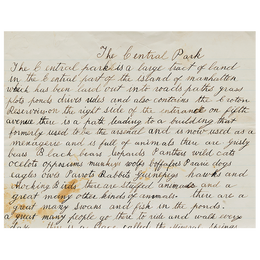 The Central Park
The Central park is a large tract of land
in the Central part of the island of manhattan
which has been laid out into roads paths grass
plots ponds drives rides and also contains the Croton
Reservoir on the right side of the entrance on fifth
avenue there is a path leading to a building that
formerly used to be the arsnal and is now used as a
menagerie and is full of animals there are grisly
bears Black bears lepards Panther wild cats
ocelots oppossums monkeys wolf buffaloes Prairie dogs
eagles owls Parrots Rabbits Guineypigs hawks and
mocking Birds there are stuffed animals and a
great many other kinds of animals. there are a
great many Swans and fish in the ponds.
a great many people go there to ride and walk every
day. There is a called the mineral springs